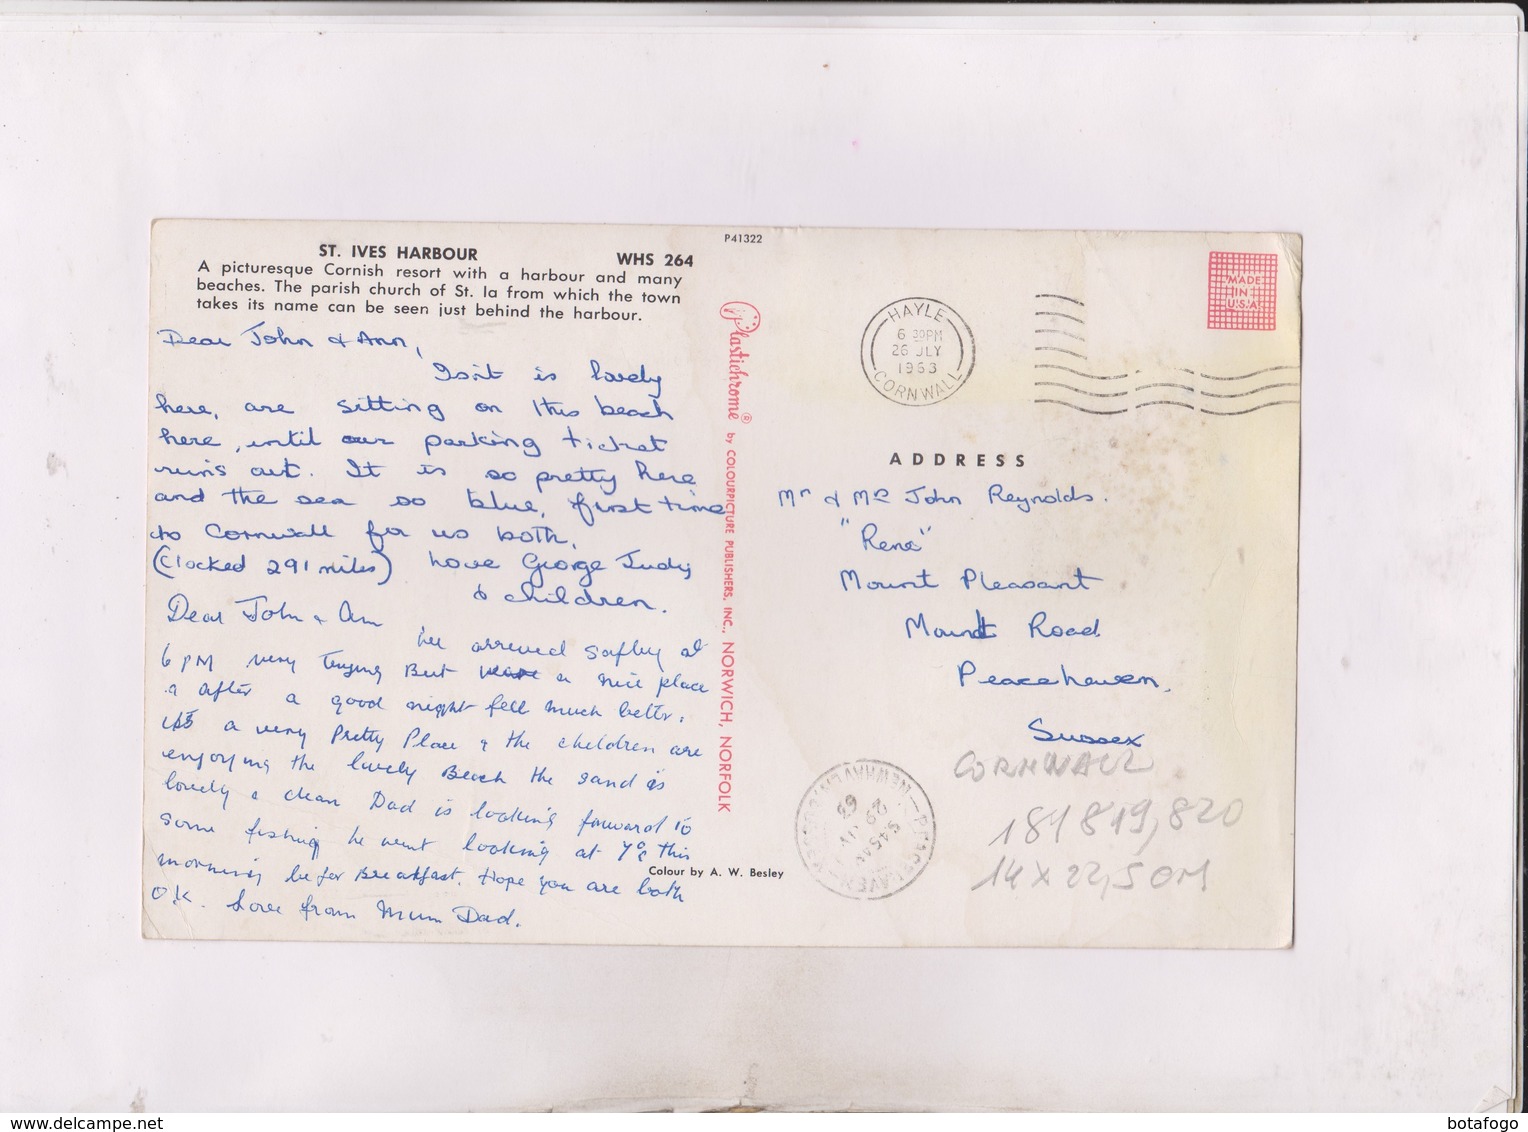 P41322
ST. IVES HARBOUR WHS 264
A picturesque Cornish resort with a harbour and many
beaches. The parish church of St. Ia from which the town
takes its name can be seen just behind the harbour.
Dear John & Ann,
Isn't is lovely
here, are sitting on this beach
here, until our parking ticket
runs out. It is so pretty here
and the sea so blue, first time
to Cornwall for us both.
(Clocked 291 miles) Love George Judy
& children.
Dear John & Ann
We arrived safley at
6 PM very Trying But a nice place
& after a good night fell much better.
its a very Pretty Place & the children are
enjoying the lovely Beach the sand is
lovely & clean Dad is looking forward to
some fishing he went looking at this
morning befor Breakfast. Hope you are both
O.K. Love from Mum Dad.
Colour by A. W. Besley
Plastichrome® by COLOURPICTURE PUBLISHERS, INC., NORWICH, NORFOLK
HAYLE
6 30PM
26 JLY
1963
CORNWALL
MADE
IN
U.S.A
ADDRESS
Mr & Mrs John Reynolds.
"Rene"
Mount Pleasant
Mount Road
Peacehaven,
Sussex
CORNWALL
181819,820
14 x 22,5 CM
PEACEHAVEN
NEWHAVEN SUSSEX
545AM
29 JY
63
www.delcampe.net
botafogo